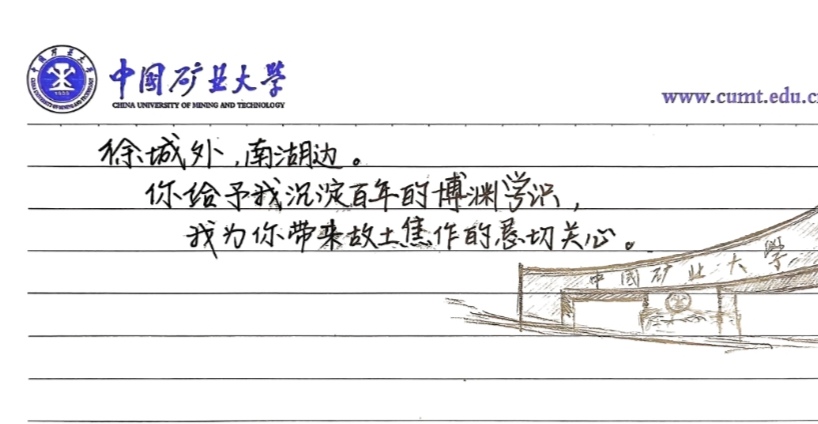 中国矿业大学
CHINA UNIVERSITY OF MINING AND TECHNOLOGY
www.cumt.edu.c
徐城外,南湖边。
你给予我沉淀百年的博渊学识,
我为你带来故土焦作的恳切关心。
中国矿业大学